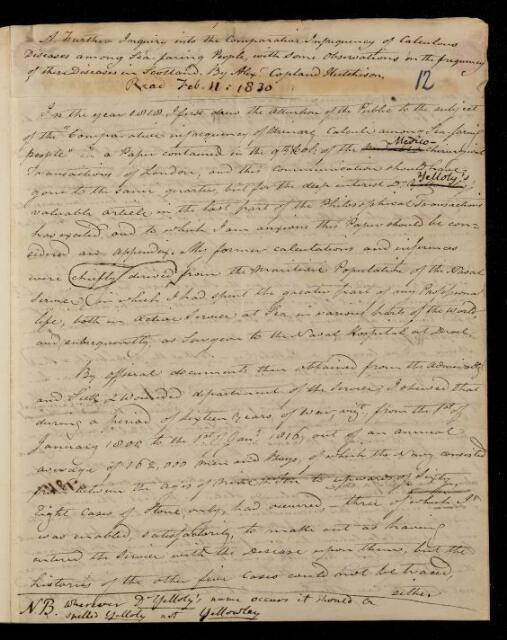 A Further Inquiry into the Comparative Infrequency of Calculous
Diseases among Sea-faring People, with some Observations on the frequency
of these Diseases in Scotland. By Alexr. Copland Hutchison.
Read Feb. 11: 1830
12
In the year 1818 I first drew the attention of the Public to the subject
of the "Comparative infrequency of Urinary Calculi among Sea faring
people" in a Paper contained in the 9th Vol. of the Medico Chirurgical
Transactions of London; and this communication should have
gone to the same quarter, but for the deep interest Dr. Yelloly's
valuable article in the last part of the Philosophical Transactions
has excited, and to which I am anxious this Paper should be con-
sidered an appendix. My former calculations and inferences
were chiefly derived from the Maritime Population of the Naval
Service (in which I had spent the greater part of my Professional
life, both on Active Service at Sea, in various parts of the World
and subsequently, as Surgeon to the Naval Hospital at Deal.
By official documents then obtained from the Admiralty
and Sick & Wounded department of the Service, I shewed that
during a period of sixteen years of War, viz. from the 1st of
January 180 to the 1st of Jany. 1816, out of an annual
average of 162,000 men and Boys, of which the Navy consisted
between the ages of to upwards of Sixty,
Eight Cases of Stone, only, had occurred, - three of which I
was enabled, satisfactorily, to make out as having
entered the Service with the Disease upon them, but the
histories of the other five Cases could not be traced,
either
NB. Wherever Dr Yelloly's name occurs it should be
spelled Yelloly not Yellowley